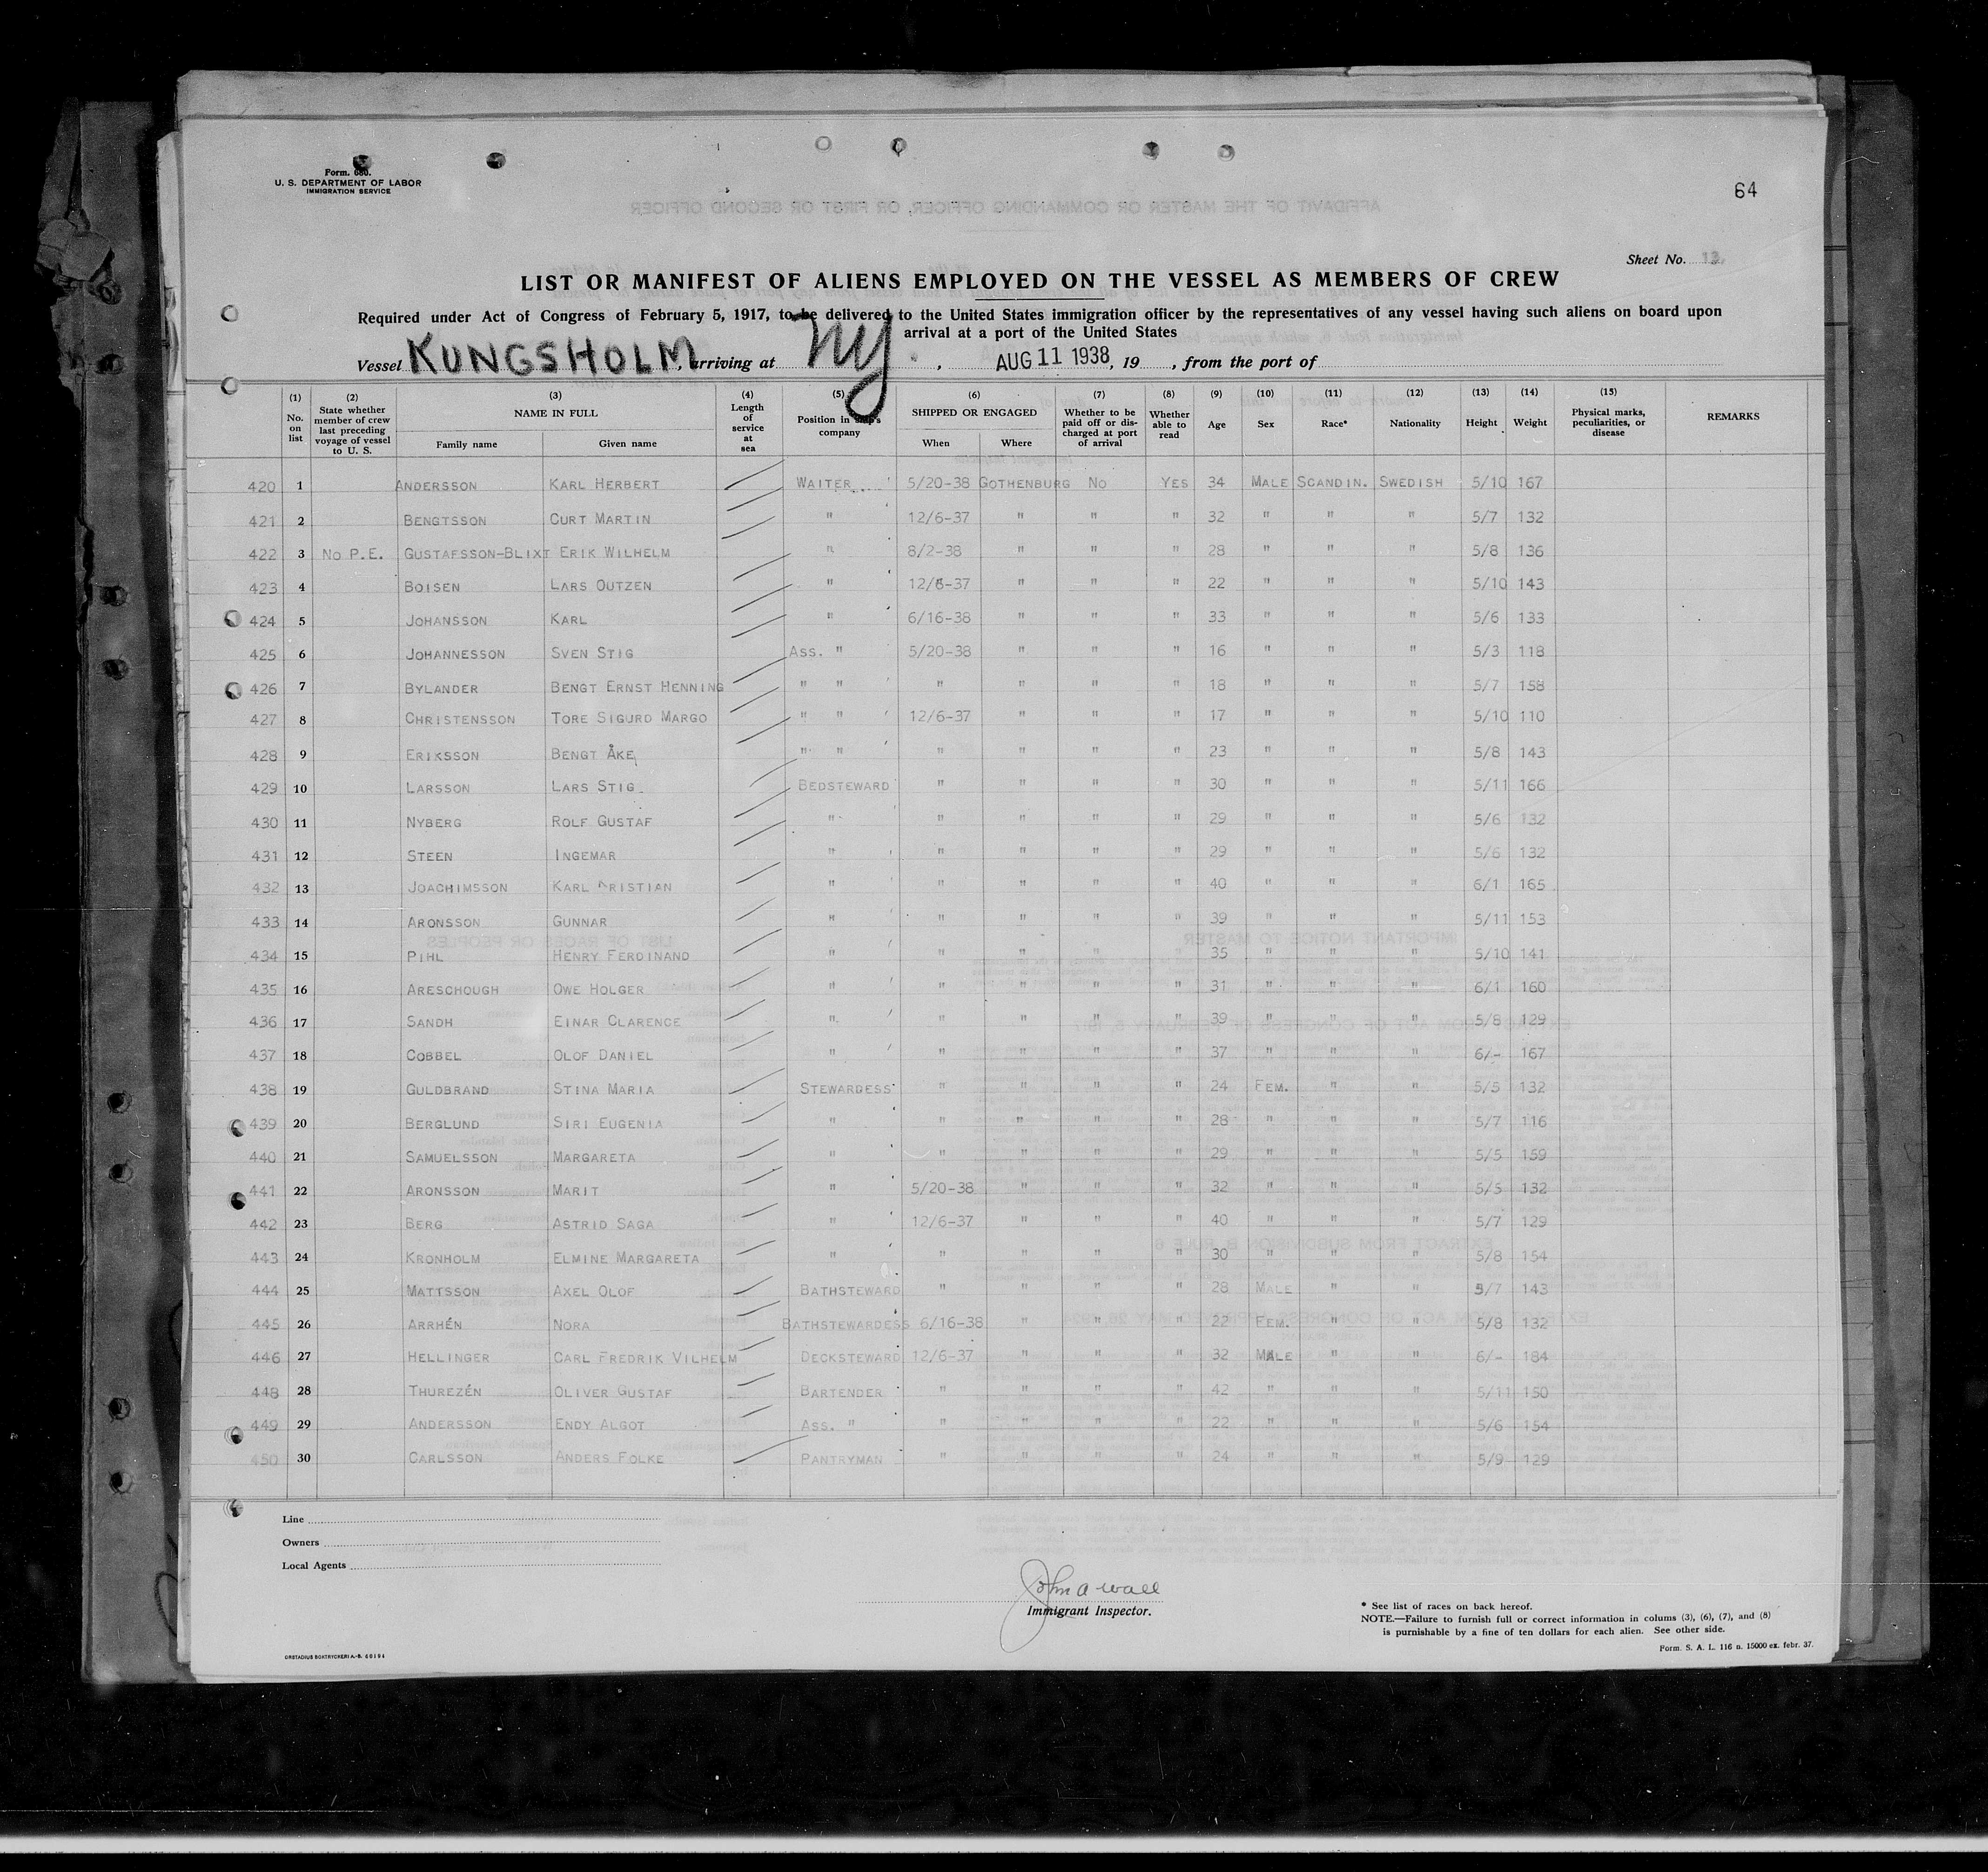 Form. 680.
U. S. DEPARTMENT OF LABOR
IMMIGRATION SERVICE
64
Sheet No. 13.
LIST OR MANIFEST OF ALIENS EMPLOYED ON THE VESSEL AS MEMBERS OF CREW
Required under Act of Congress of February 5, 1917, to be delivered to the United States immigration officer by the representatives of any vessel having such aliens on board upon
arrival at a port of the United States
Vessel KUNGSHOLM, arriving at NY., AUG 11 1938, 19 , from the port of
(1) No. on list (2) State whether member of crew last preceding voyage of vessel to U. S. (3) NAME IN FULL Family name Given name (4) Length of service at sea (5) Position in ship's company (6) SHIPPED OR ENGAGED When Where (7) Whether to be paid off or discharged at port of arrival (8) Whether able to read (9) Age (10) Sex (11) Race* (12) Nationality (13) Height (14) Weight (15) Physical marks, peculiarities, or disease REMARKS
420 1 ANDERSSON KARL HERBERT WAITER 5/20-38 GOTHENBURG NO YES 34 MALE SCANDIN. SWEDISH 5/10 167
421 2 BENGTSSON CURT MARTIN " 12/6-37 " " " 32 " " " 5/7 132
422 3 NO P.E. GUSTAFSSON-BLIXT ERIK WILHELM " 8/2-38 " " " 28 " " " 5/8 136
423 4 BOISEN LARS OUTZEN " 12/6-37 " " " 22 " " " 5/10 143
424 5 JOHANSSON KARL " 6/16-38 " " " 33 " " " 5/6 133
425 6 JOHANNESSON SVEN STIG ASS. " 5/20-38 " " " 16 " " " 5/3 118
426 7 BYLANDER BENGT ERNST HENNING " " " " " " 18 " " " 5/7 158
427 8 CHRISTENSSON TORE SIGURD MARGO " " 12/6-37 " " " 17 " " " 5/10 110
428 9 ERIKSSON BENGT ÅKE " " " " " " 23 " " " 5/8 143
429 10 LARSSON LARS STIG BEDSTEWARD " " " " 30 " " " 5/11 166
430 11 NYBERG ROLF GUSTAF " " " " " 29 " " " 5/6 132
431 12 STEEN INGEMAR " " " " " 29 " " " 5/6 132
432 13 JOACHIMSSON KARL KRISTIAN " " " " " 40 " " " 6/1 165
433 14 ARONSSON GUNNAR " " " " " 39 " " " 5/11 153
434 15 PIHL HENRY FERDINAND " " " " " 35 " " " 5/10 141
435 16 ARESCHOUGH OWE HOLGER " " " " " 31 " " " 6/1 160
436 17 SANDH EINAR CLARENCE " " " " " 39 " " " 5/8 129
437 18 COBBEL OLOF DANIEL " " " " " 37 " " " 6/- 167
438 19 GULDBRAND STINA MARIA STEWARDESS " " " " 24 FEM. " " 5/5 132
439 20 BERGLUND SIRI EUGENIA " " " " " 28 " " " 5/7 116
440 21 SAMUELSSON MARGARETA " " " " " 29 " " " 5/5 159
441 22 ARONSSON MARIT " 5/20-38 " " " 32 " " " 5/5 132
442 23 BERG ASTRID SAGA " 12/6-37 " " " 40 " " " 5/7 129
443 24 KRONHOLM ELMINE MARGARETA " " " " " 30 " " " 5/8 154
444 25 MATTSSON AXEL OLOF BATHSTEWARD " " " " 28 MALE " " 5/7 143
445 26 ARRHÉN NORA BATHSTEWARDESS 6/16-38 " " " 22 FEM. " " 5/8 132
446 27 HELLINGER CARL FREDRIK VILHELM DECKSTEWARD 12/6-37 " " " 32 MALE " " 6/- 184
448 28 THUREZÉN OLIVER GUSTAF BARTENDER " " " " 42 " " " 5/11 150
449 29 ANDERSSON ENDY ALGOT ASS. " " " " " 22 " " " 5/6 154
450 30 CARLSSON ANDERS FOLKE PANTRYMAN " " " " 24 " " " 5/9 129
Line
Owners
Local Agents
John A Wall
Immigrant Inspector.
* See list of races on back hereof.
NOTE.—Failure to furnish full or correct information in colums (3), (6), (7), and (8)
is punishable by a fine of ten dollars for each alien. See other side.
Form. S. A. L. 116 n. 15000 ex. febr. 37.
ORSTADIUS BOKTRYCKERI A.-B. 60194